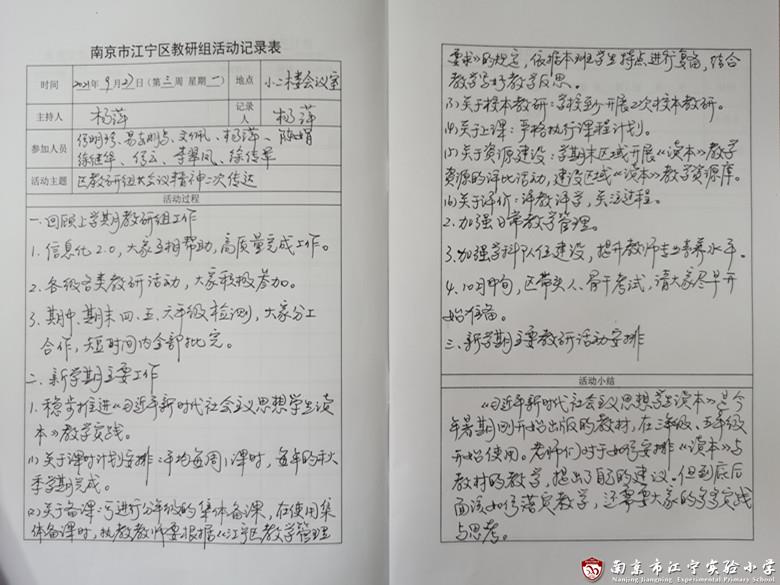 南京市江宁区教研组活动记录表
时间 2021年9月27日(第三周 星期一) 地点 小二楼会议室
主持人 杨萍 记录人 杨萍
参加人员
徐继华、 李翠凤、
活动主题 区教研组大会议精神二次传达
活动过程
一.回顾上学期教研组工作
1.信息化2.0,大家互相帮助,高质量完成工作。
2.各级各类教研活动,大家积极参加。
3.期中、期末四、五、六年级检测,大家分工
合作,短时间内全部批完。
二.新学期主要工作
1.稳步推进《习近平新时代社会主义思想学生读
本》教学实践。
(1)关于课时计划安排:平均每周1课时,每年的秋
季学期完成。
(2)关于备课:可进行分年级的集体备课,在使用集
体备课时,执教教师要根据《江宁区教学管理
要求》的规定,依据本班学生特点进行复备,结合
教学写好教学反思。
(3)关于校本教研:学校至少开展2次校本教研。
(4)关于上课:严格执行课程计划。
(5)关于资源建设:学期末区域开展《读本》教学
资源的评比活动,建设区域《读本》教学资源库。
(6)关于评价:评教评学,关注过程。
2.加强日常教学管理。
3.加强学科队伍建设,提升教师专业素养水平。
4.10月中旬,区带头人、骨干考试,请大家尽早开
始准备。
三.新学期主要教研活动安排
活动小结
《习近平新时代社会主义思想学生读本》是今
年暑期刚开始出版的教材,在三年级、五年级
开始使用。老师们对于如何安排《读本》与
教材的教学,提出了自己的建议。但到底后
面该如何落实教学,还需要大家的多多实践
与思考。
南京市江宁实验小学
Nanjing Jiangning Experimental Primary School